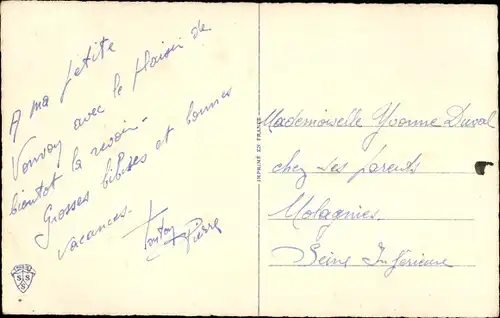 A ma petite
Vonvon avec le plaisir de
bientot la revoir -
Grosses bibises et bonnes
vacances.
Tonton
Pierre
IMPRIMÉ EN FRANCE
Mademoiselle Yvonne Duval
chez ses parents
Molagnies
Seine Inférieure